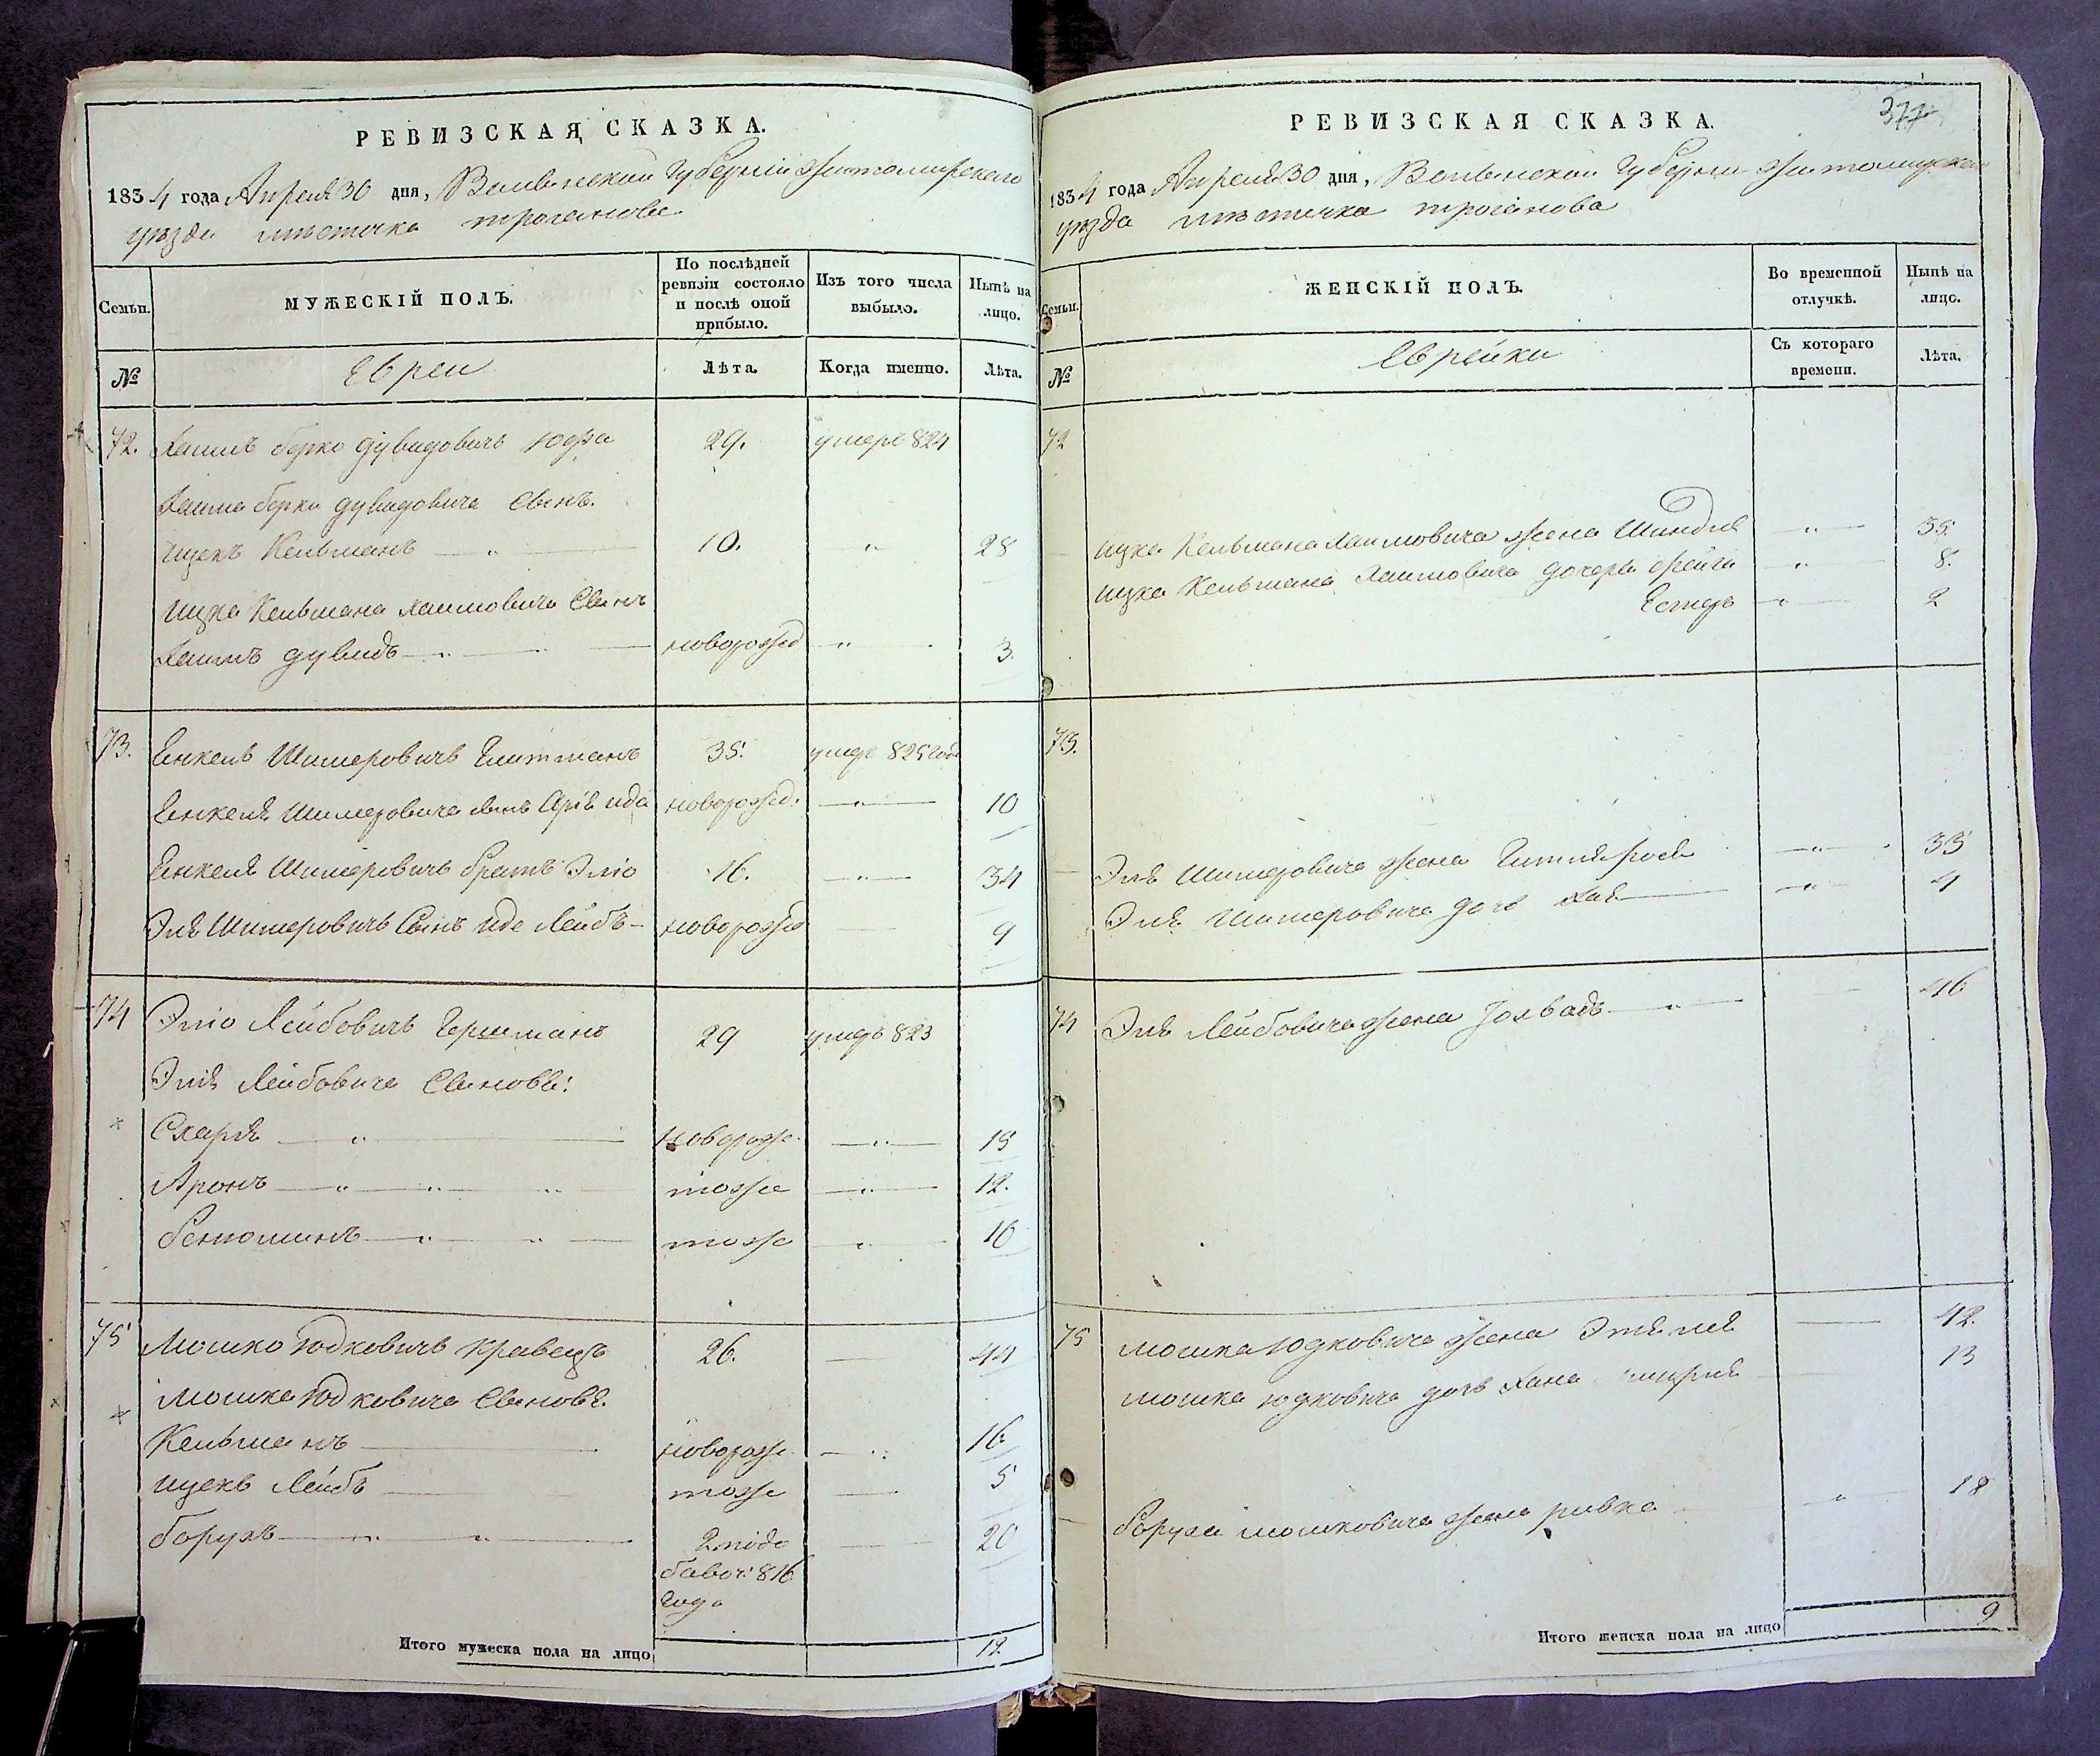 РЕВИЗСКАЯ СКАЗКА.
1834 года Апреля 30 дня, Волынской Губернiи Житомирскаго
уезда местечка троганова
Семьи.
МУЖЕСКІЙ ПОЛЪ.
По послѣдней ревизіи состояло и послѣ оной прибыло.
Изъ того числа выбыло.
Нынѣ на лицо.
№
Евреи
Лѣта.
Когда именно.
Лѣта.
72. Хаимъ берко дувидовичъ 29. умеръ 824
Хаима берки дувидовича Сынъ.
ицекъ Кельманъ 10. 28
ицка Кельмана хаимовича Сынъ
Хаимъ дувидъ новорожед 3.
73. Енкель Шмеровичъ Гитманъ 35. умеръ 825 года
Енкеля Шмеровича сынъ новорожед. 10
Енкеля Шмеровичъ братъ Эліо 16. 34
Эля Шмеровичъ Сынъ иде Лейбъ новорожед 9
74 Эліо Лейбовичъ Гершманъ 29 умеръ 823
Элія Лейбовича Сыновья:
Схарія новорож. 15
Аронъ тоже 12.
бенюминъ тоже 10
75 Мошко Юдковичъ Кравецъ 26. 44
мошка Юдковича Сыновья.
Кельманъ новорож. 16
ицекъ Лейбъ тоже 5
борухъ 20
816
года
Итого мужеска пола на лицо 12.
377
РЕВИЗСКАЯ СКАЗКА.
1834 года Апреля 30 дня, Волынской Губернiи Житомирскаго
уезда местечка троганова
Семьи.
ЖЕНСКІЙ ПОЛЪ.
Во временной отлучкѣ.
Нынѣ на лицо.
№
Еврейки
Съ котораго времени.
Лѣта.
72
ицка Кельмана Хаимовича жена Шиндля 35.
ицка Кельмана Хаимовича дочери фейга 8.
Естеръ 2
73.
Эля Шмеровича жена 33
Эля Шмеровича дочь хая 4
74 Эля Лейбовича жена 46
75 мошка Юдковича жена Этеля 42.
мошка юдковича дочь хана 13
боруха мошковича жена ривка 18
Итого женска пола на лицо 9